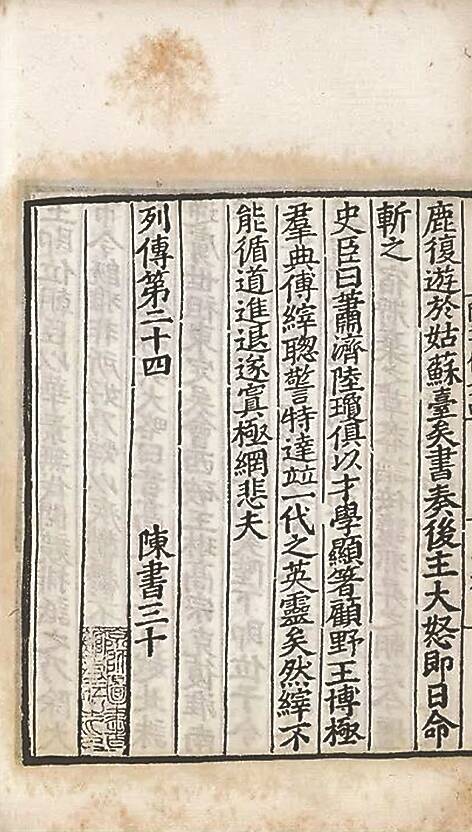 鹿復遊於姑蘇臺矣書奏後主大怒即日命
斬之
史臣曰蕭濟陸瓊俱以才學顯著顧野王博極
羣典傅縡聦警特達竝一代之英靈矣然縡不
能循道進退遂寘極網悲夫
列傳第二十四　陳書三十